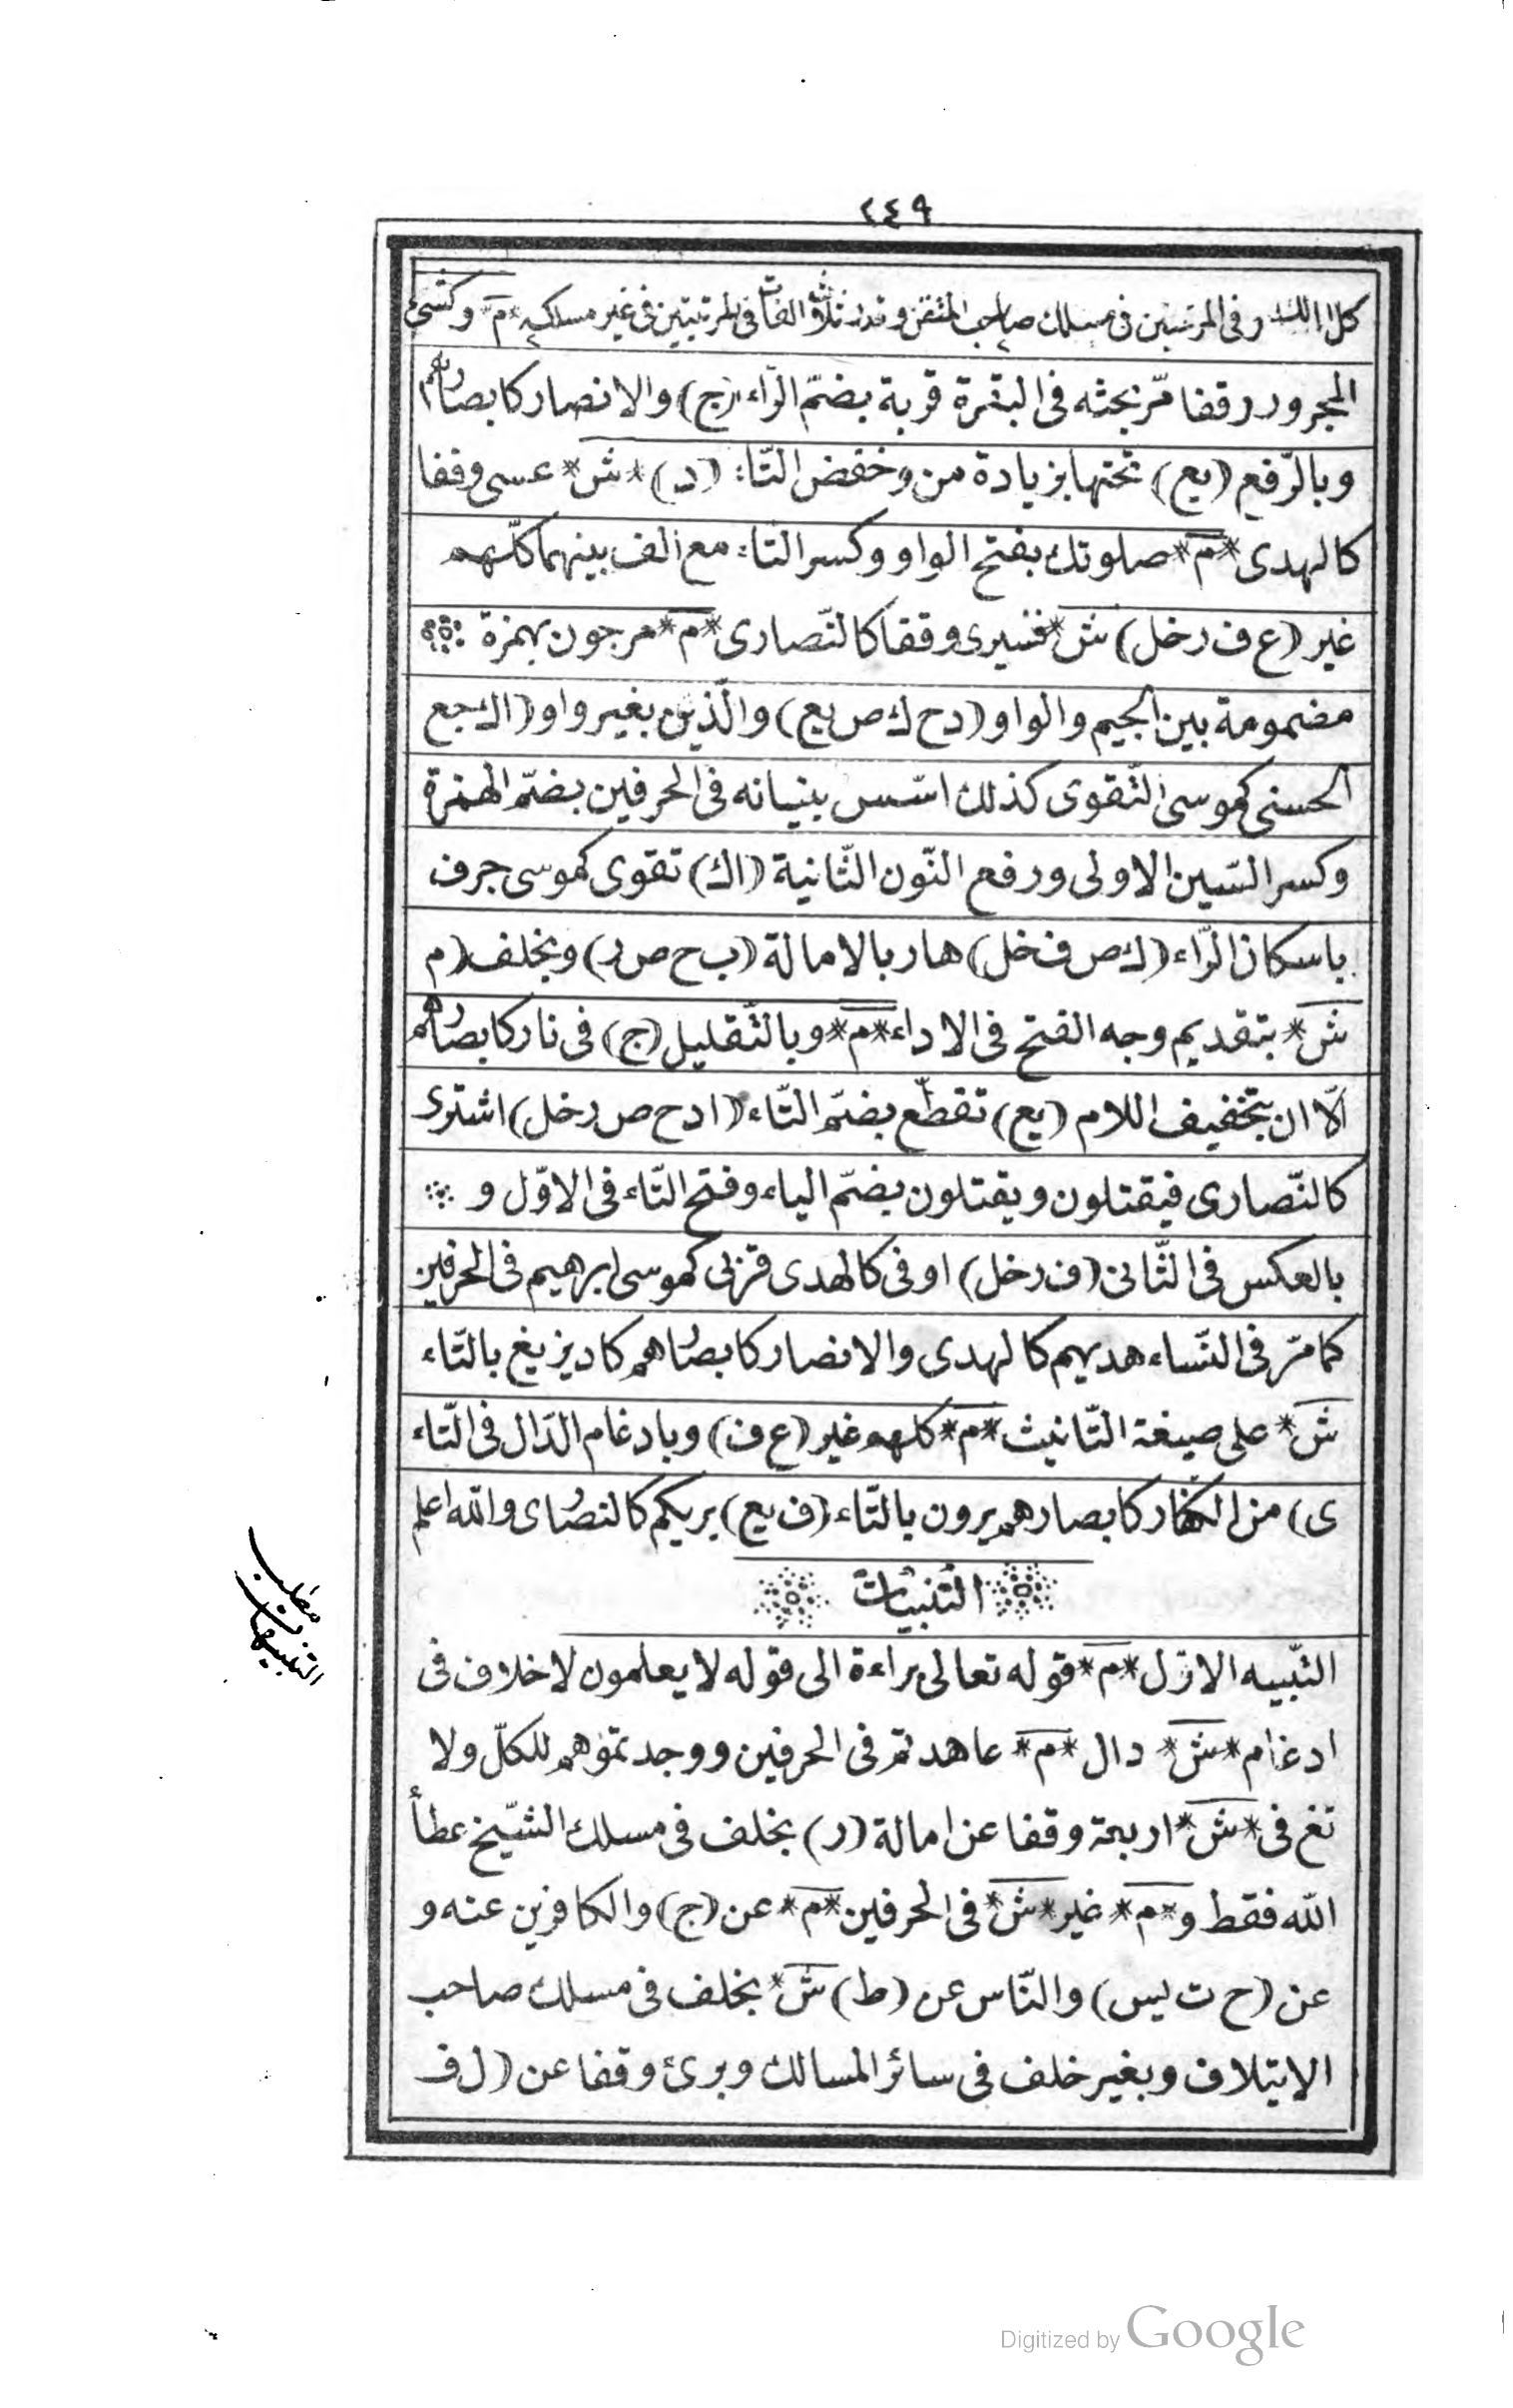 ٢٤٩
وفى المرتبتين فى مسلك صاحب المتقن وقدر ثلاث الفات فى المرتبتين فى غير مسلكه *م* وكشئ
المجرور وقفا مرّ بحثه فى البقرة قربة بضمّ الرّاء (ج) والانصار كابصارهم
وبالرّفع (يع) تحتها بزيادة من وخفض التّاء (د) *ش* عسى وقفا
كالهدى *م* صلوتك بفتح الواو وكسر التاء مع الف بينهما كلّهم
غير (ع ف رخل) ش* فسيرى وقفا كالنّصارى *م* مرجون بهمزة
مضمومة بين الجيم والواو (دح ك ص يع) والّذين بغير واو (اك جع
الحسنى كموسى التّقوى كذلك اسّس بنيانه فى الحرفين بضمّ الهمزة
وكسر السّين الاولى ورفع النّون الثّانية (اك) تقوى كموسى جرف
باسكان الرّاء (ك ص ف خل) هار بالامالة (ب ح ص ر) وبخلف (م
ش* بتقديم وجه الفتح فى الاداء *م* وبالتّقليل (ج) فى نار كابصارهم
الّا ان بتخفيف اللام (يع) تقطّع بضمّ التّاء (ادح ص رخل) اشترى
كالنّصارى فيقتلون ويقتلون بضمّ الياء وفتح التّاء فى الاوّل و
بالعكس فى الثّانى (ف رخل) اوفى كالهدى قربى كموسى ابرهيم فى الحرفين
كما مرّ فى النّساء هديهم كالهدى والانصار كابصارهم كاد يزيغ بالتّاء
ش* على صيغة التّانيث *م* كلهم غير (ع ف) وبادغام الدّال فى التّاء
ى) من الكفّار كابصارهم يرون بالتّاء (ف يع) يريكم كالنصارى والله اعلم
التنبيهات
مطلب
التنبيهات
التّنبيه الاوّل *م* قوله تعالى براءة الى قوله لا يعلمون لا خلاف فى
ادغام *ش* دال *م* عاهدتم فى الحرفين ووجدتموهم للكلّ ولا
تغ فى *ش* اربعة وقفا عن امالة (ر) بخلف فى مسلك الشّيخ عطأ
الله فقط و *م* غير *ش* فى الحرفين *م* عن (ج) والكافرين عنه و
عن (ح ت يس) والنّاس عن (ط) ش* بخلف فى مسلك صاحب
الايتلاف وبغير خلف فى سائر المسالك وبرئ وقفا عن (ل ف
Digitized by Google